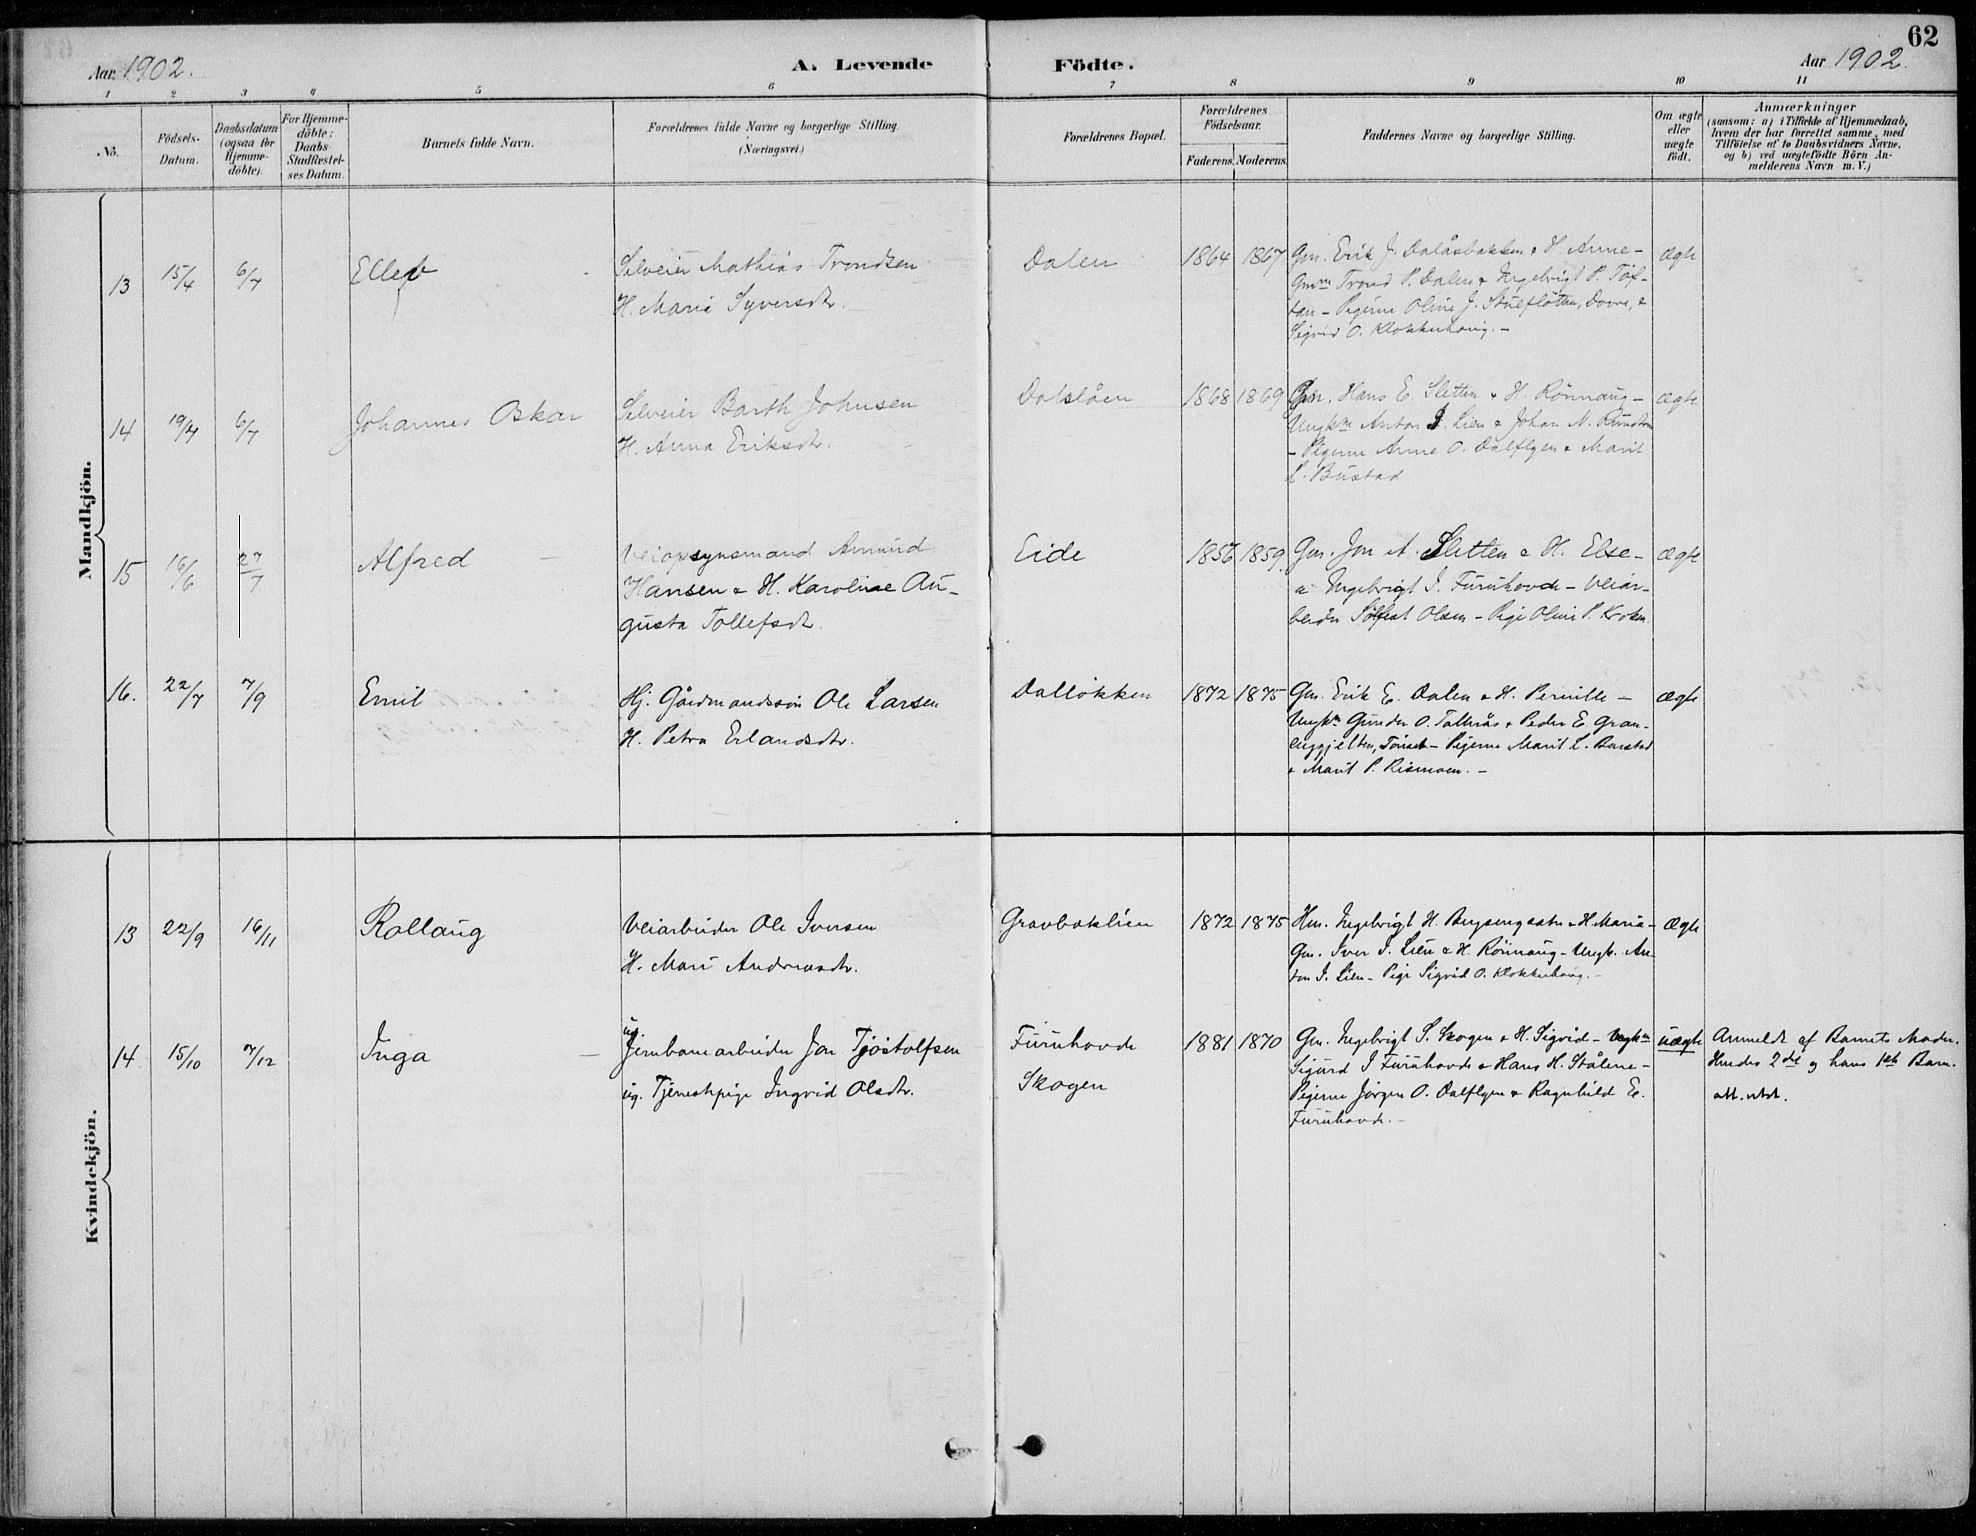 62
Aar 1902.
A. Levende Födte.
Aar 1902.
1 2 3 4 5 6 7 8 9 10 11
No.
Födsels-
Datum.
Daabsdatum
(ogsaa for
Hjemme-
döbte).
For Hjemme-
döbte:
Daabs-
Stadfæstel-
ses Datum.
Barnets fulde Navn.
Forældrenes fulde Navne og borgerlige Stilling
(Næringsvei.)
Forældrenes Bopæl.
Forældrenes
Födselsaar.
Faderens. Moderens.
Faddernes Navne og borgerlige Stilling.
Om ægte
eller
uægte
födt.
Anmærkninger
(saasom: a) i Tilfælde af Hjemmedaab,
hvem der har forrettet samme, med
Tilföielse af to Daabsvidners Navne,
og b) ved uægtefödte Börn An-
melderens Navn m. V.)
Mandkjön.
13 15/4 6/7 Ellef
Selveier Mathias Trondsen
H. Mari Syversdtr.
Dalen 1864 1867
Gm. Erik J. Dalåsbakken & H. Anne-
Gmm Trond P. Dalen & Ingebrigt P. Tøf-
tan - Pigerne Oline J. Stuefløtten, Dovre, &
Sigrid O. Klokkerhaug. -
ægte
14 19/4 6/7 Johannes Oskar
Selveier Barth Johnsen
H. Anna Eriksdtr.
Dalslåen 1868 1869
Gm. Hans E. Sletten & H. Rønnaug -
Ungkm Anton I. Lien & Johan N.
- Pigerne Anne O. Dalflyen & Marit
L. Bustad
ægte
15 16/6 27/7 Alfred
Veiopsynsmand Amund
Hansen & H. Karoline Au-
gusta Tollefsdtr.
Eide 1856 1859.
Gm. Jon A. Sletten & H. Else -
& Ingebrigt I. Furuhovde - Veiar-
beider Sølfest Olsen - Pige Oline P. Kroken
ægte
16. 22/7 7/9 Emil
Hj. Gårdmandssøn Ole Larsen
H. Petra Erlandsdtr.
Dalløkken 1872 1875
Gm. Erik E. Dalen & H. Pernille -
Ungkm Gunder O. Tallerås & Peder E. Gran-
, Tønset - Pigerne Marit L. Bustad
& Marit P. Rismoen. -
ægte
Kvindekjön.
13 22/9 16/11 Rollaug
Veiarbeider Ole Iversen
H. Mari Andreasdtr.
Gravbaklien 1872 1875
Hm. Ingebrigt H. Bergsengsætr & H. Maria -
Gm. Iver I. Lien & H. Rønnaug - Ungk. An-
ton I. Lien - Pige Sigrid O. Klokkerhaug. -
Ægte
14 15/10 7/12 Inga
ug.
Jernbanearbeider Jon Tjøstolfsen
ug. Tjenestepige Ingrid Olsdtr.
Furuhovde
Skogen
1881 1870
Gm. Ingebrigt S. Skogen & H. Sigrid - Ungkm
Sigurd I Furuhovde & Hans H. Stålene -
Pigerne Jørgen O. Dalflyen & Ragnhild E.
Furuhovde. -
uægte
Anmeldt af Barnets Moder.
Hendes 2det og hans 1ste Barn.
att. utst.